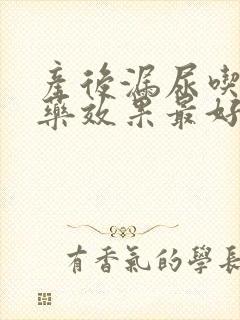 產後漏尿喫
藥效果最好
有香氣的學長